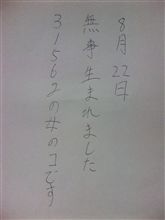 8月22日
無事生まれました
31562の女のコです